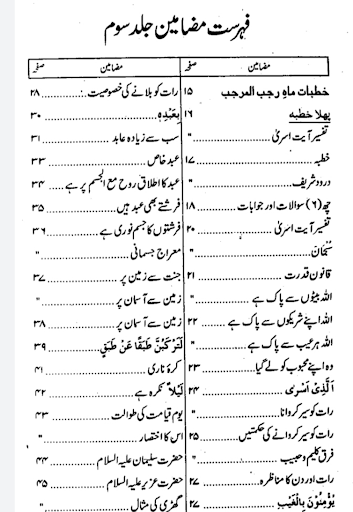 فہرست مضامین جلد سوم
مضامین صفحہ
خطبات ماہ رجب المرجب ۱۵
پہلا خطبہ ۱۶
تفسیر آیت اسریٰ "
خطبہ ۱۷
درود شریف "
چھ (۶) سوالات اور جوابات ۱۸
تفسیر آیت اسریٰ ۲۰
سُبْحَانَ "
قانون قدرت ۲۱
اللہ بیٹوں سے پاک ہے "
اللہ اپنے شریکوں سے پاک ہے ۲۲
اللہ ہر عیب سے پاک ہے "
وہ اپنے محبوب کو لے گیا ۲۳
اَلَّذِیْ اَسْرٰی ۲۴
رات کو سیر کروانا "
رات کو سیر کروانے کی حکمتیں ۲۵
فرق کلیم و حبیب "
رات اور دن کا مناظرہ ۲۷
یُؤْمِنُوْنَ بِالْغَیْبِ ۲۷
مضامین صفحہ
رات کو بلانے کی خصوصیت: ۲۸
بِعَبْدِہٖ ۳۰
سب سے زیادہ عابد ۳۱
عبد خاص ۳۳
عبد کا اطلاق روح مع الجسم پر ہے ۳۴
فرشتے بھی عبد ہیں ۳۵
فرشتوں کا جسم نوری ہے ۳۶
معراج جسمانی "
جنت سے زمین پر ۳۷
زمین سے آسمان پر "
زمین سے آسمان پر ۳۸
لَتَرْكَبُنَّ طَبَقًا عَنْ طَبَقٍ ۳۹
کرۂ ناری ۴۱
لَیْلاً نکرہ ہے ۴۲
یوم قیامت کی طوالت ۴۳
اس کا اختصار "
حضرت سلیمان علیہ السلام ۴۴
حضرت عزیر علیہ السلام ۴۵
گھڑی کی مثال "